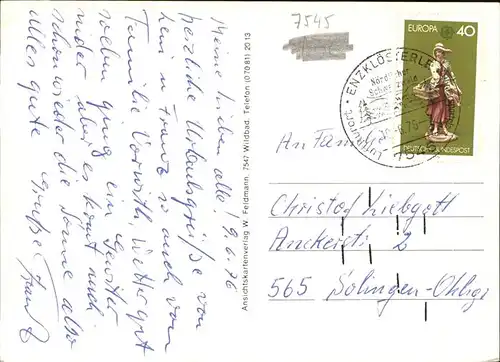 7545
EUROPA 40
DEUTSCHE BUNDESPOST
ENZKLÖSTERLE
Luftkurort
Nördlicher
7545
An Familie
Christof Liebgott
Anckerstr. 2
565 Solingen-Ohligs
Ansichtskartenverlag W. Feldmann, 7547 Wildbad, Telefon (07081) 2013
Meine Lieben alle! 9.6.76
herzliche Urlaubsgrüße von
hier u. Franz so auch von
Familie Vorwirth, Wetter gut
soeben ging ein Gewitter
nieder aber es kommt auch
schon wieder die Sonne also
alles gute Grüße